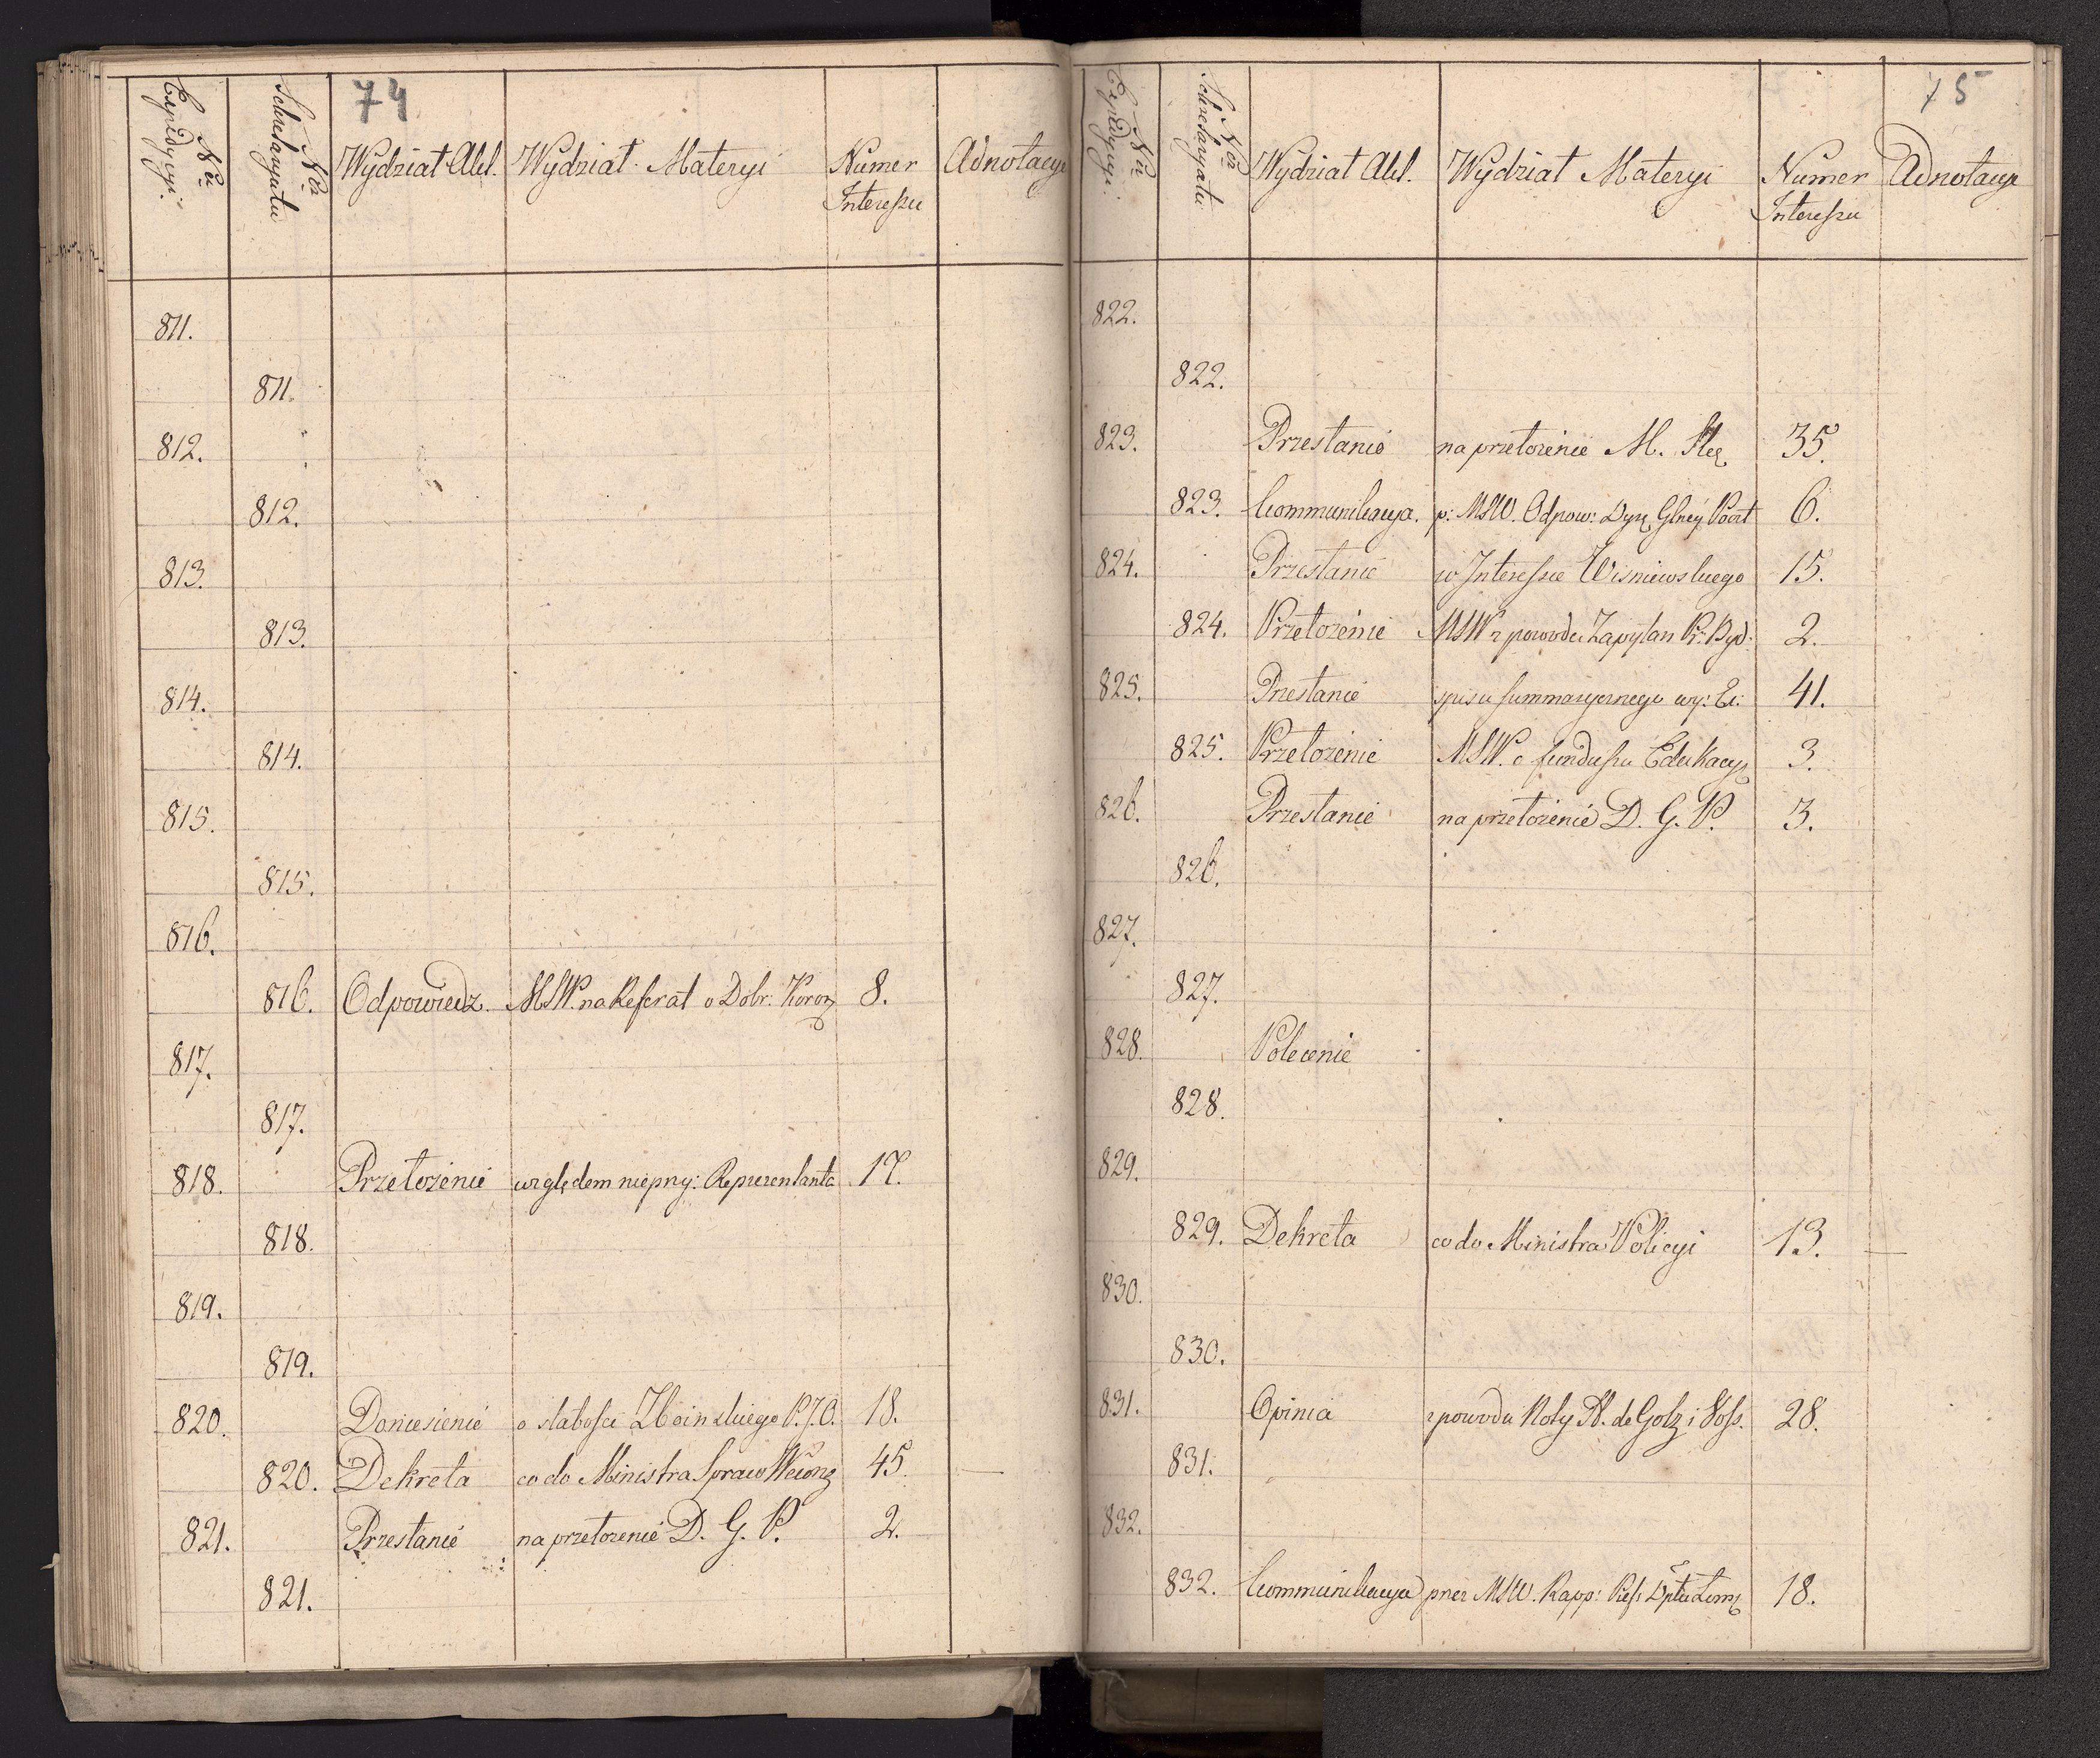 74
Nra Expedycyi.
Nra Sekretaryatu
Wydział Akt.
Wydział Materyi
Numer Interessu
Adnotacye
811.
811.
812.
812.
813.
813.
814.
814.
815.
815.
816.
816. Odpowiedz. MSW. na Referat o Dobr: Koron 8.
817.
817.
818. Przełożenie względem nieprzy: Reprezentanta 17.
818.
819.
819.
820. Doniesienie o słabości Zboinskiego P.J.O. 18.
820. Dekreta co do Ministra Spraw Wewnę 45.
821. Przesłanie na przełożenie D. G. P. 2.
821.
75
Nra Expedycyi.
Nra Sekretaryatu
Wydział Akt.
Wydział Materyi
Numer Interessu
Adnotacye
822.
822.
823. Przesłanie na przełożenie M. 35.
823. Kommunikacya. p: MSW. Odpow: Dyr. Glney Poczt 6.
824. Przesłanie w Interessie Wisniewskiego 15.
824. Przełożenie MSW z powodu Zapytan Pr: Byd: 2.
825. Przesłanie spisu summarycznego 41.
825. Przełożenie MSW. o funduszu Edukacyi 3.
826. Przesłanie na przełożenie D. G. P. 3.
826.
827.
827.
828. Polecenie
828.
829.
829. Dekreta co do Ministra Policyi 13.
830.
830.
831. Opinia z powodu Noty de Goltz i Voss. 28.
831.
832.
832. Kommunikacya przez MSW. Rapp: Pref: Dptu Łomż 18.